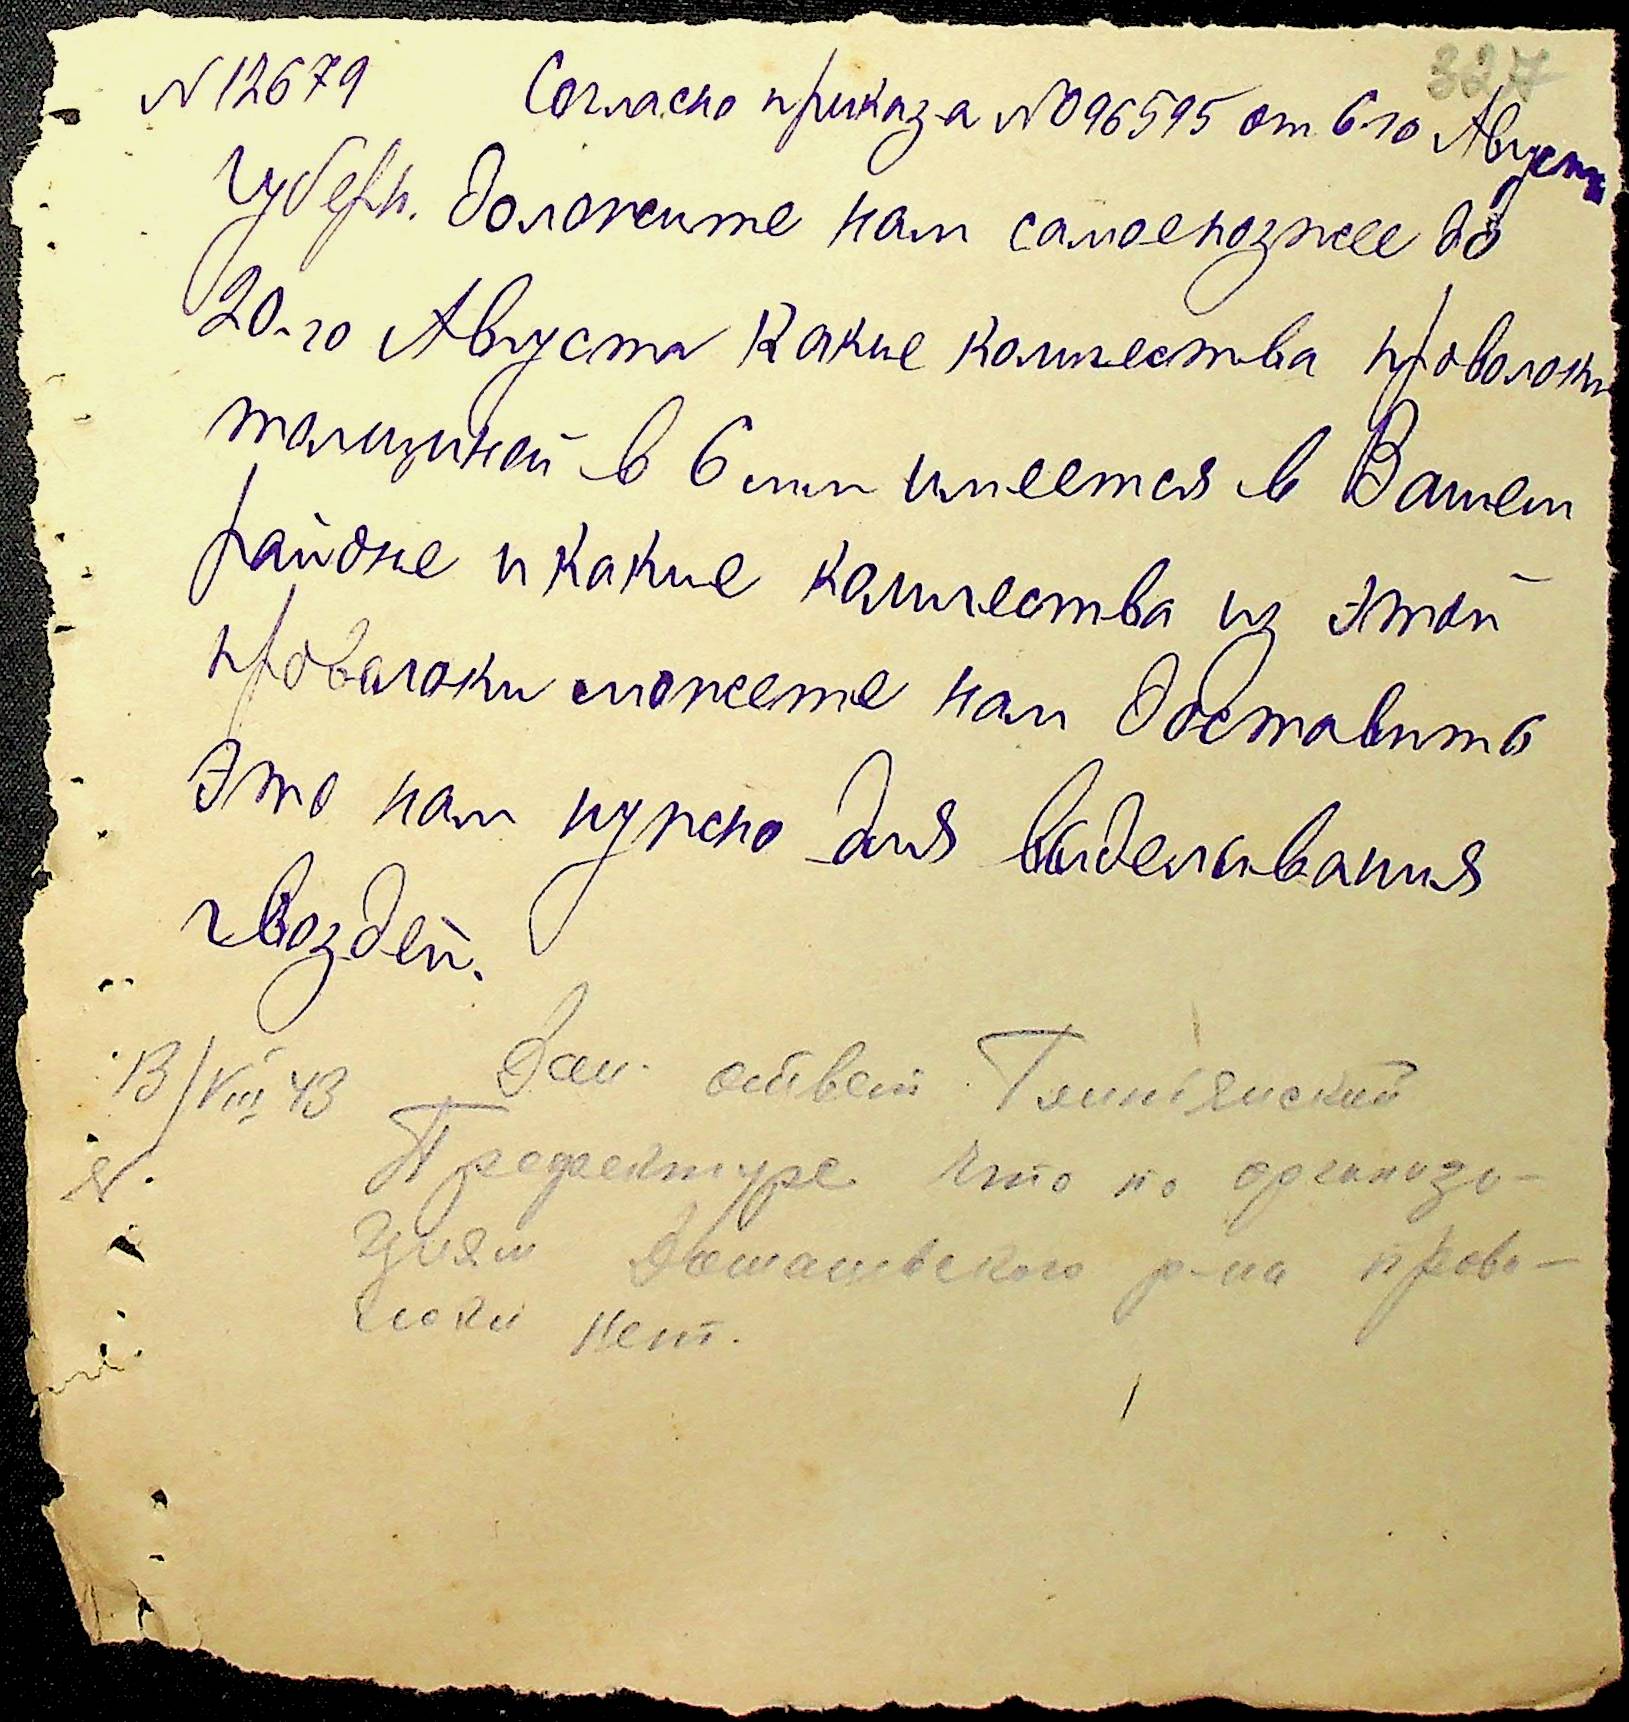 327
N 12679 Согласно приказа N 096595 от 6-го Августа
Губерн. доложите нам самоепозжее до
20-го Августа какие количества проволоки
толщиной в 6 мм имеется в Вашем
районе и какие количества из этой
проволоки сможете нам доставить
это нам нужно для выделывания
гвоздей.
13/VIII 43 Дан. ответ
Префектуре что по организа-
циям р-на прово-
локи нет.